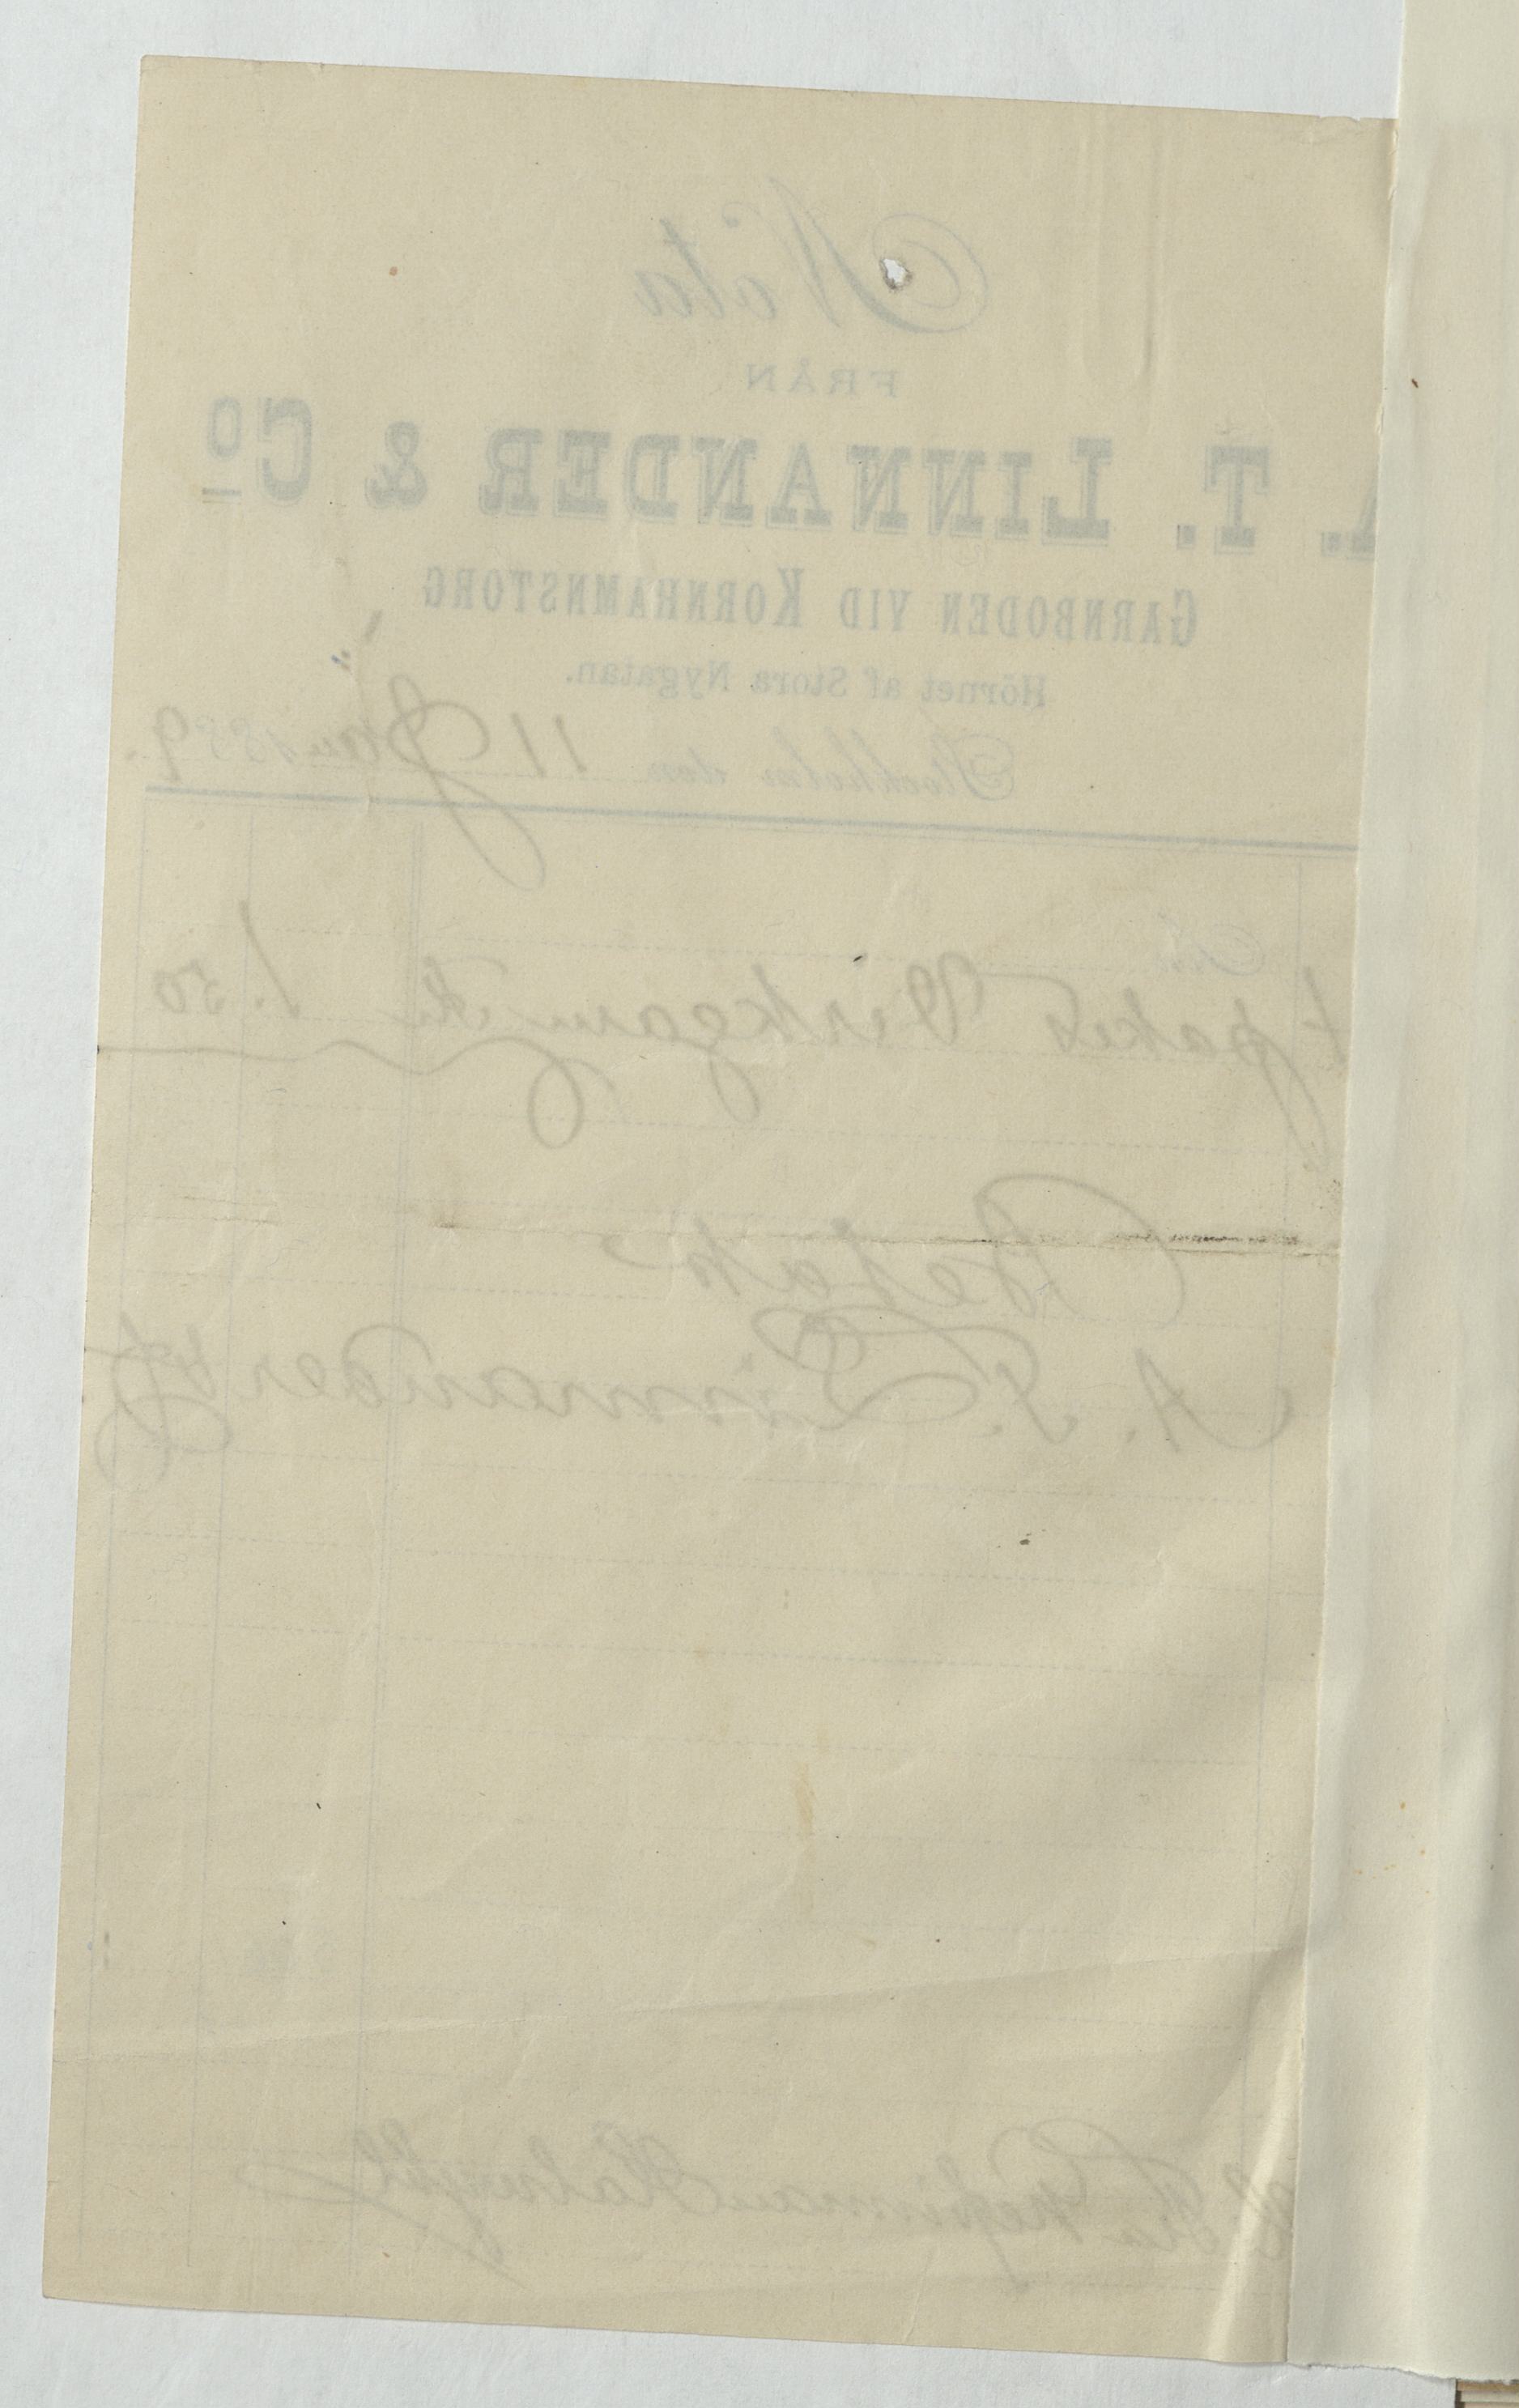 Nota
FRÅN
A. T. LINNANDER & Co
GARNBODEN VID KORNHAMNSTORG
Hörnet af Stora Nygatan.
Stockholm den 11 Jan 1889.
paket Virkgarn 1.50
Betalt
A. T. Linnander & Co
Hallwyhl